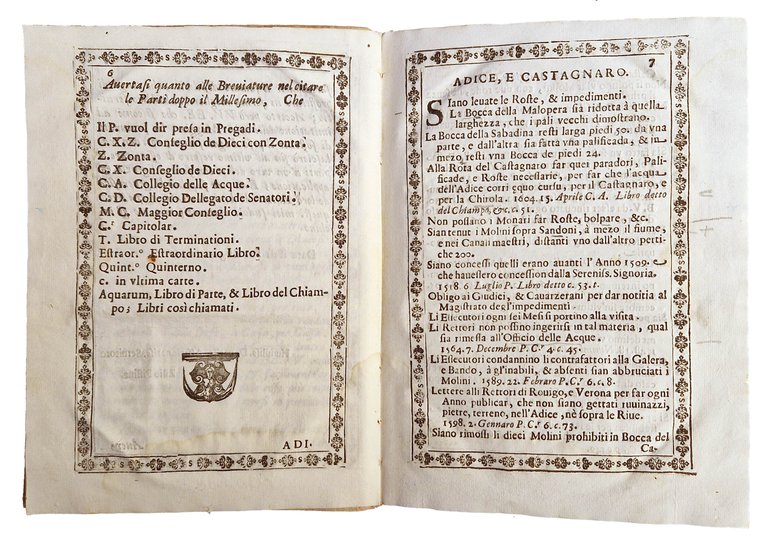 6
Auertasi quanto alle Breuiature nel citare
le Parti doppo il Millesimo, Che
Il P. vuol dir presa in Pregadi.
C. X. Z. Conseglio de Dieci con Zonta.
Z. Zonta.
C. X. Conseglio de Dieci.
C. A. Collegio delle Acque.
C. D. Collegio Dellegato de Senatori.
M. C. Maggior Conseglio.
C.r Capitolar.
T. Libro di Terminationi.
Estraor.o Estraordinario Libro.
Quint.o Quinterno.
c. in vltima carte.
Aquarum, Libro di Parte, & Libro del Chiam-
po; Libri così chiamati.
ADI.
7
ADICE, E CASTAGNARO.
SIano leuate le Roste, & impedimenti.
La Bocca della Malopera sia ridotta à quella
larghezza, che i pali vecchi dimostrano.
La Bocca della Sabadina resti larga piedi 50. da vna
parte, e dall'altra sia fatta vna palificada, & in
mezo resti vna Bocca de piedi 24.
Alla Rota del Castagnaro far quei paradori, Pali-
ficade, e Roste necessarie, per far che l'acqua
dell'Adice corri equo cursu, per il Castagnaro, e
per la Chirola. 1604. 15. Aprile C. A. Libro detto
del Chiampo, &c. c. 51.
Non possano i Monari far Roste, bolpare, &c.
Sian tenut i Molini sopra Sandoni, à mezo il fiume,
e nei Canali maestri, distanti vno dall'altro perti-
che 200.
Siano concessi quelli erano auanti l'Anno 1509. e
che hauessero concession dalla Sereniss. Signoria.
1518. 6 Luglio P. Libro detto c. 53. t.
Obligo ai Giudici, & Cauarzerani per dar notitia al
Magistrato degl'impedimenti.
Li Essecutori ogni sei Mesi si portino alla visita.
Li Rettori non possino ingerirsi in tal materia, qual
sia rimessa all'Officio delle Acque.
1564. 7. Decembre P. C.r 4. c. 45.
Li Essecutori condannino li contrafattori alla Galera,
e Bando, à gl'inabili, & absenti sian abbruciati i
Molini. 1589. 22. Febraro P. C.r 6. c. 8.
Lettere alli Rettori di Rouigo, e Verona per far ogni
Anno publicar, che non siano gettati ruuinazzi,
pietre, terreno, nell'Adice, nè sopra le Riue.
1598. 2. Gennaro P. C.r 6. c. 73.
Siano rimossi li dieci Molini prohibiti in Bocca del
Ca-